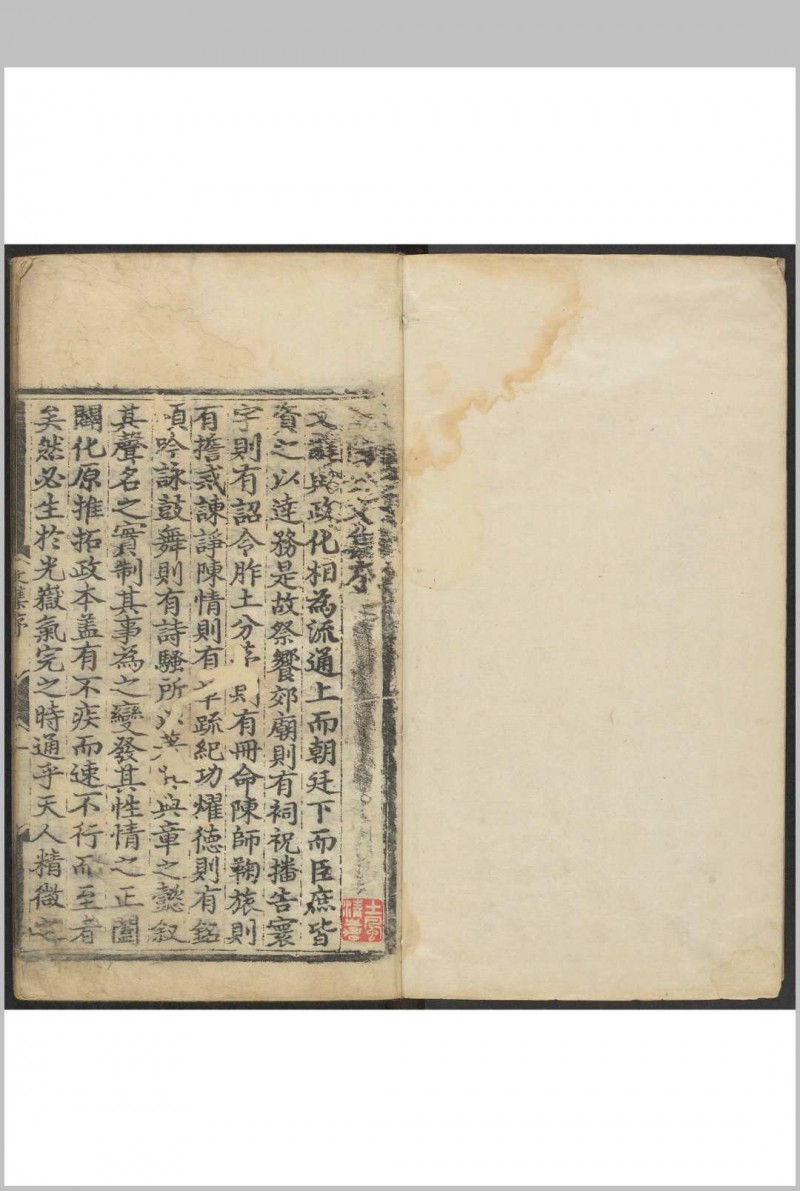 文集序
文辭與政化相為流通上而朝廷下而臣庶皆
資之以達務是故祭饗郊廟則有祠祝播告寰
宇則有詔令胙土分 則有冊命陳師鞠旅則
有誓戒諫諍陳情則有 疏紀功燿德則有銘
頌吟詠鼓舞則有詩騷所以 典章之懿叙
其聲名之實制其事為之變發其性情之正闔
闢化原推拓政本盖有不疾而速不行而至者
矣然必生於光嶽氣完之時通乎天人精微之
文集序
一